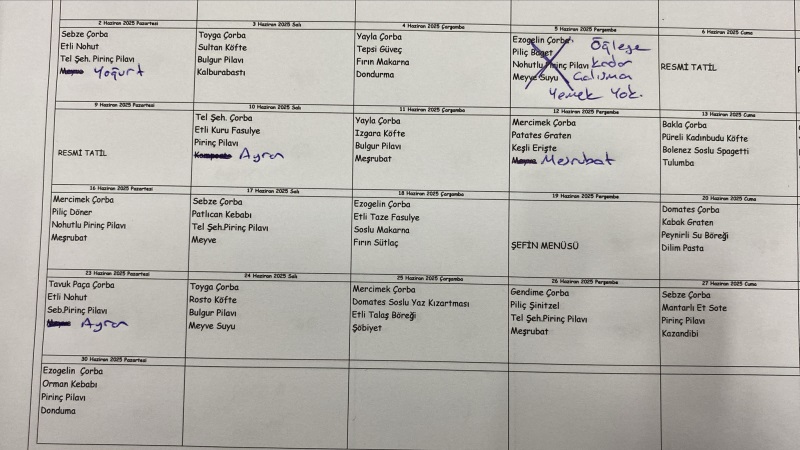 2 Haziran 2025 Pazartesi
Sebze Çorba
Etli Nohut
Tel Şeh. Pirinç Pilavı
Meyve Yoğurt
3 Haziran 2025 Salı
Toyga Çorba
Sultan Köfte
Bulgur Pilavı
Kalburabastı
4 Haziran 2025 Çarşamba
Yayla Çorba
Tepsi Güveç
Fırın Makarna
Dondurma
5 Haziran 2025 Perşembe
Ezogelin Çorba Öğleye
Piliç Baget
Nohutlu Pirinç Pilavı Kadar
Meyve Suyu Çalışma
Yemek Yok.
6 Haziran 2025 Cuma
RESMİ TATİL
9 Haziran 2025 Pazartesi
RESMİ TATİL
10 Haziran 2025 Salı
Tel Şeh. Çorba
Etli Kuru Fasulye
Pirinç Pilavı
Komposto Ayran
11 Haziran 2025 Çarşamba
Yayla Çorba
Izgara Köfte
Bulgur Pilavı
Meşrubat
12 Haziran 2025 Perşembe
Mercimek Çorba
Patates Graten
Keşli Erişte
Meyve Meşrubat
13 Haziran 2025 Cuma
Bakla Çorba
Püreli Kadınbudu Köfte
Bolenez Soslu Spagetti
Tulumba
16 Haziran 2025 Pazartesi
Mercimek Çorba
Piliç Döner
Nohutlu Pirinç Pilavı
Meşrubat
17 Haziran 2025 Salı
Sebze Çorba
Patlıcan Kebabı
Tel Şeh.Pirinç Pilavı
Meyve
18 Haziran 2025 Çarşamba
Ezogelin Çorba
Etli Taze Fasulye
Soslu Makarna
Fırın Sütlaç
19 Haziran 2025 Perşembe
ŞEFİN MENÜSÜ
20 Haziran 2025 Cuma
Domates Çorba
Kabak Graten
Peynirli Su Böreği
Dilim Pasta
23 Haziran 2025 Pazartesi
Tavuk Paça Çorba
Etli Nohut
Seb.Pirinç Pilavı
Meyve Ayran
24 Haziran 2025 Salı
Toyga Çorba
Rosto Köfte
Bulgur Pilavı
Meyve Suyu
25 Haziran 2025 Çarşamba
Mercimek Çorba
Domates Soslu Yaz Kızartması
Etli Talaş Böreği
Şöbiyet
26 Haziran 2025 Perşembe
Gendime Çorba
Piliç Şinitzel
Tel Şeh.Pirinç Pilavı
Meşrubat
27 Haziran 2025 Cuma
Sebze Çorba
Mantarlı Et Sote
Pirinç Pilavı
Kazandibi
30 Haziran 2025 Pazartesi
Ezogelin Çorba
Orman Kebabı
Pirinç Pilavı
Donduma